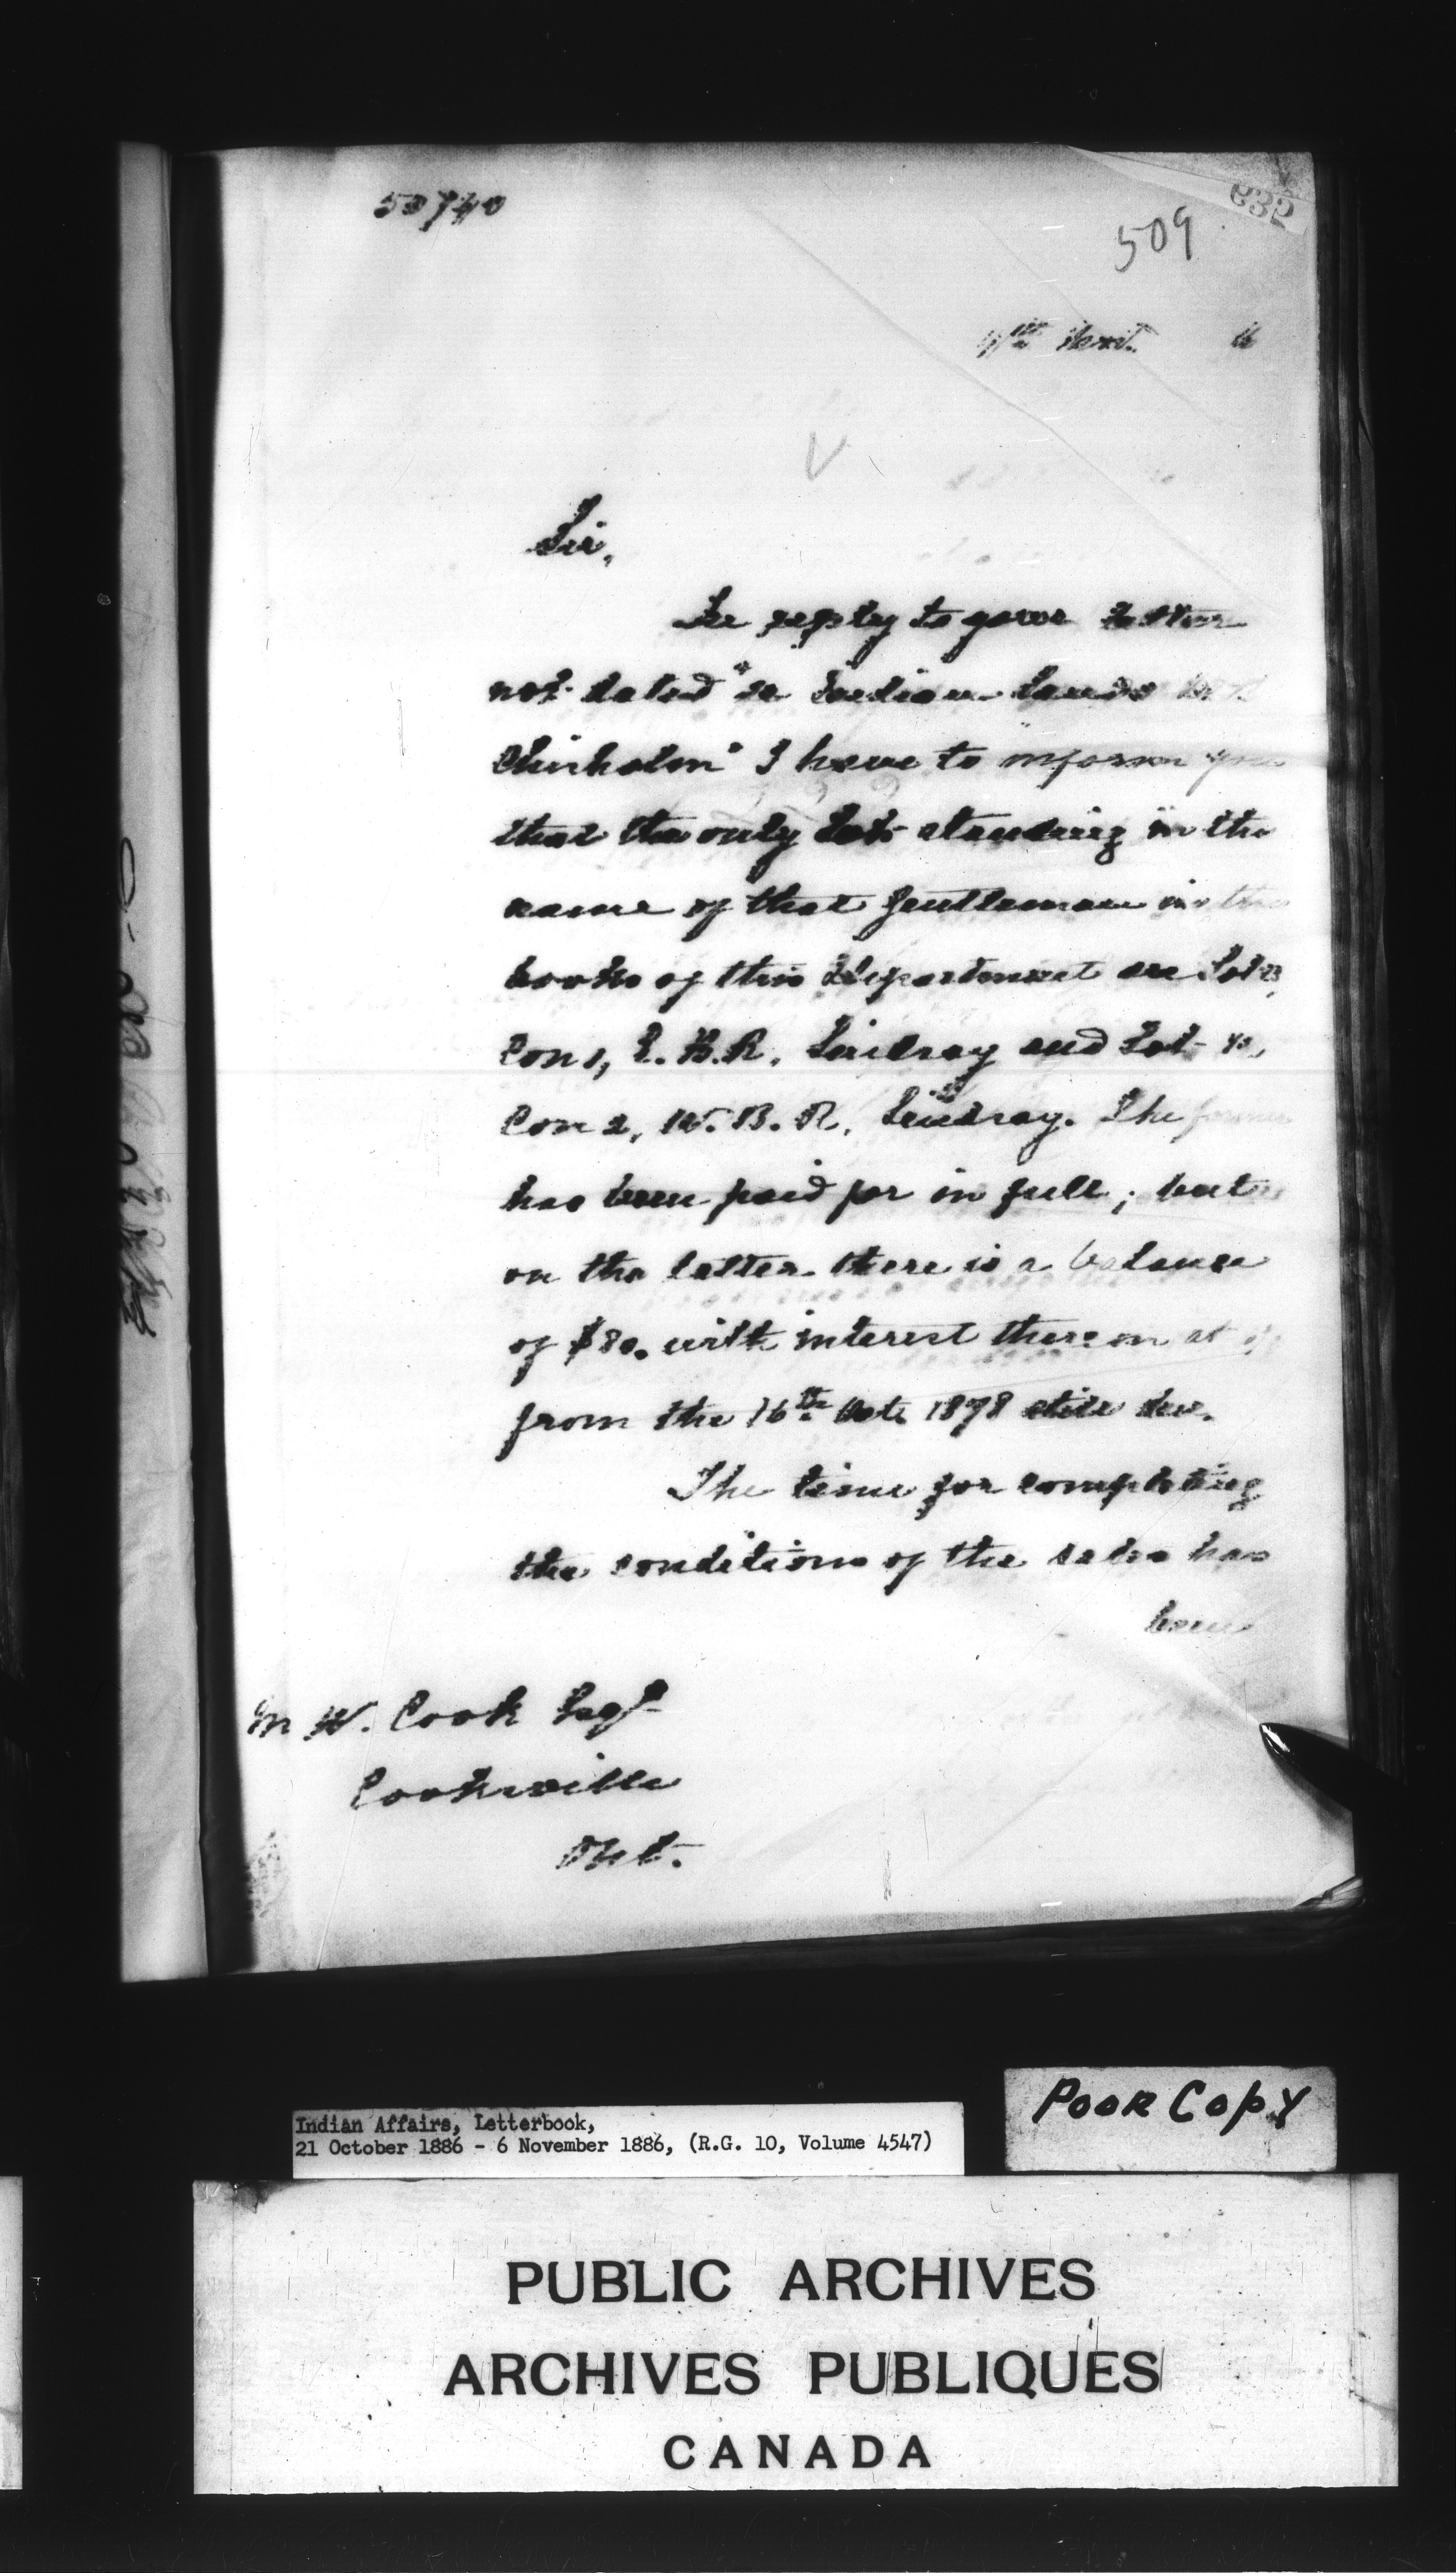 50740
509
Sir,
In reply to your letter
not dated "re Indian Lands
Chisholm" I have to inform you
that the only lots standing in the
name of that gentleman in the
books of this Department are Lot
Con 1, E. B. R. Lindsay and Lot
Con 2, W. B. R. Lindsay. The former
has been paid for in full; but
on the latter there is a balance
of $80. with interest thereon at
from the 16th Oct. 1878 still due.
The time for completing
the conditions of the sales has
been
M W. Cook Esqr
Cooksville
Ont.
Poor Copy
Indian Affairs, Letterbook,
21 October 1886 - 6 November 1886, (R.G. 10, Volume 4547)
PUBLIC ARCHIVES
ARCHIVES PUBLIQUES
CANADA